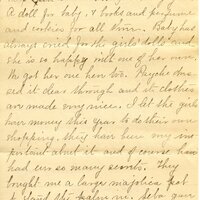 A doll for baby, & books and perfume
and cookies for all four. Baby has
always cried for the girls' dolls and
she is so happy with one of her own.
We got her one here too. Psyche dres-
sed it clear through and its clothes
are made very nice. I let the girls
have money this year to do their own
shopping, they have been very im-
portant about it and of course have
had ever so many secrets. They
bought me a large majolica pot
to stand the palm in. Seba gave